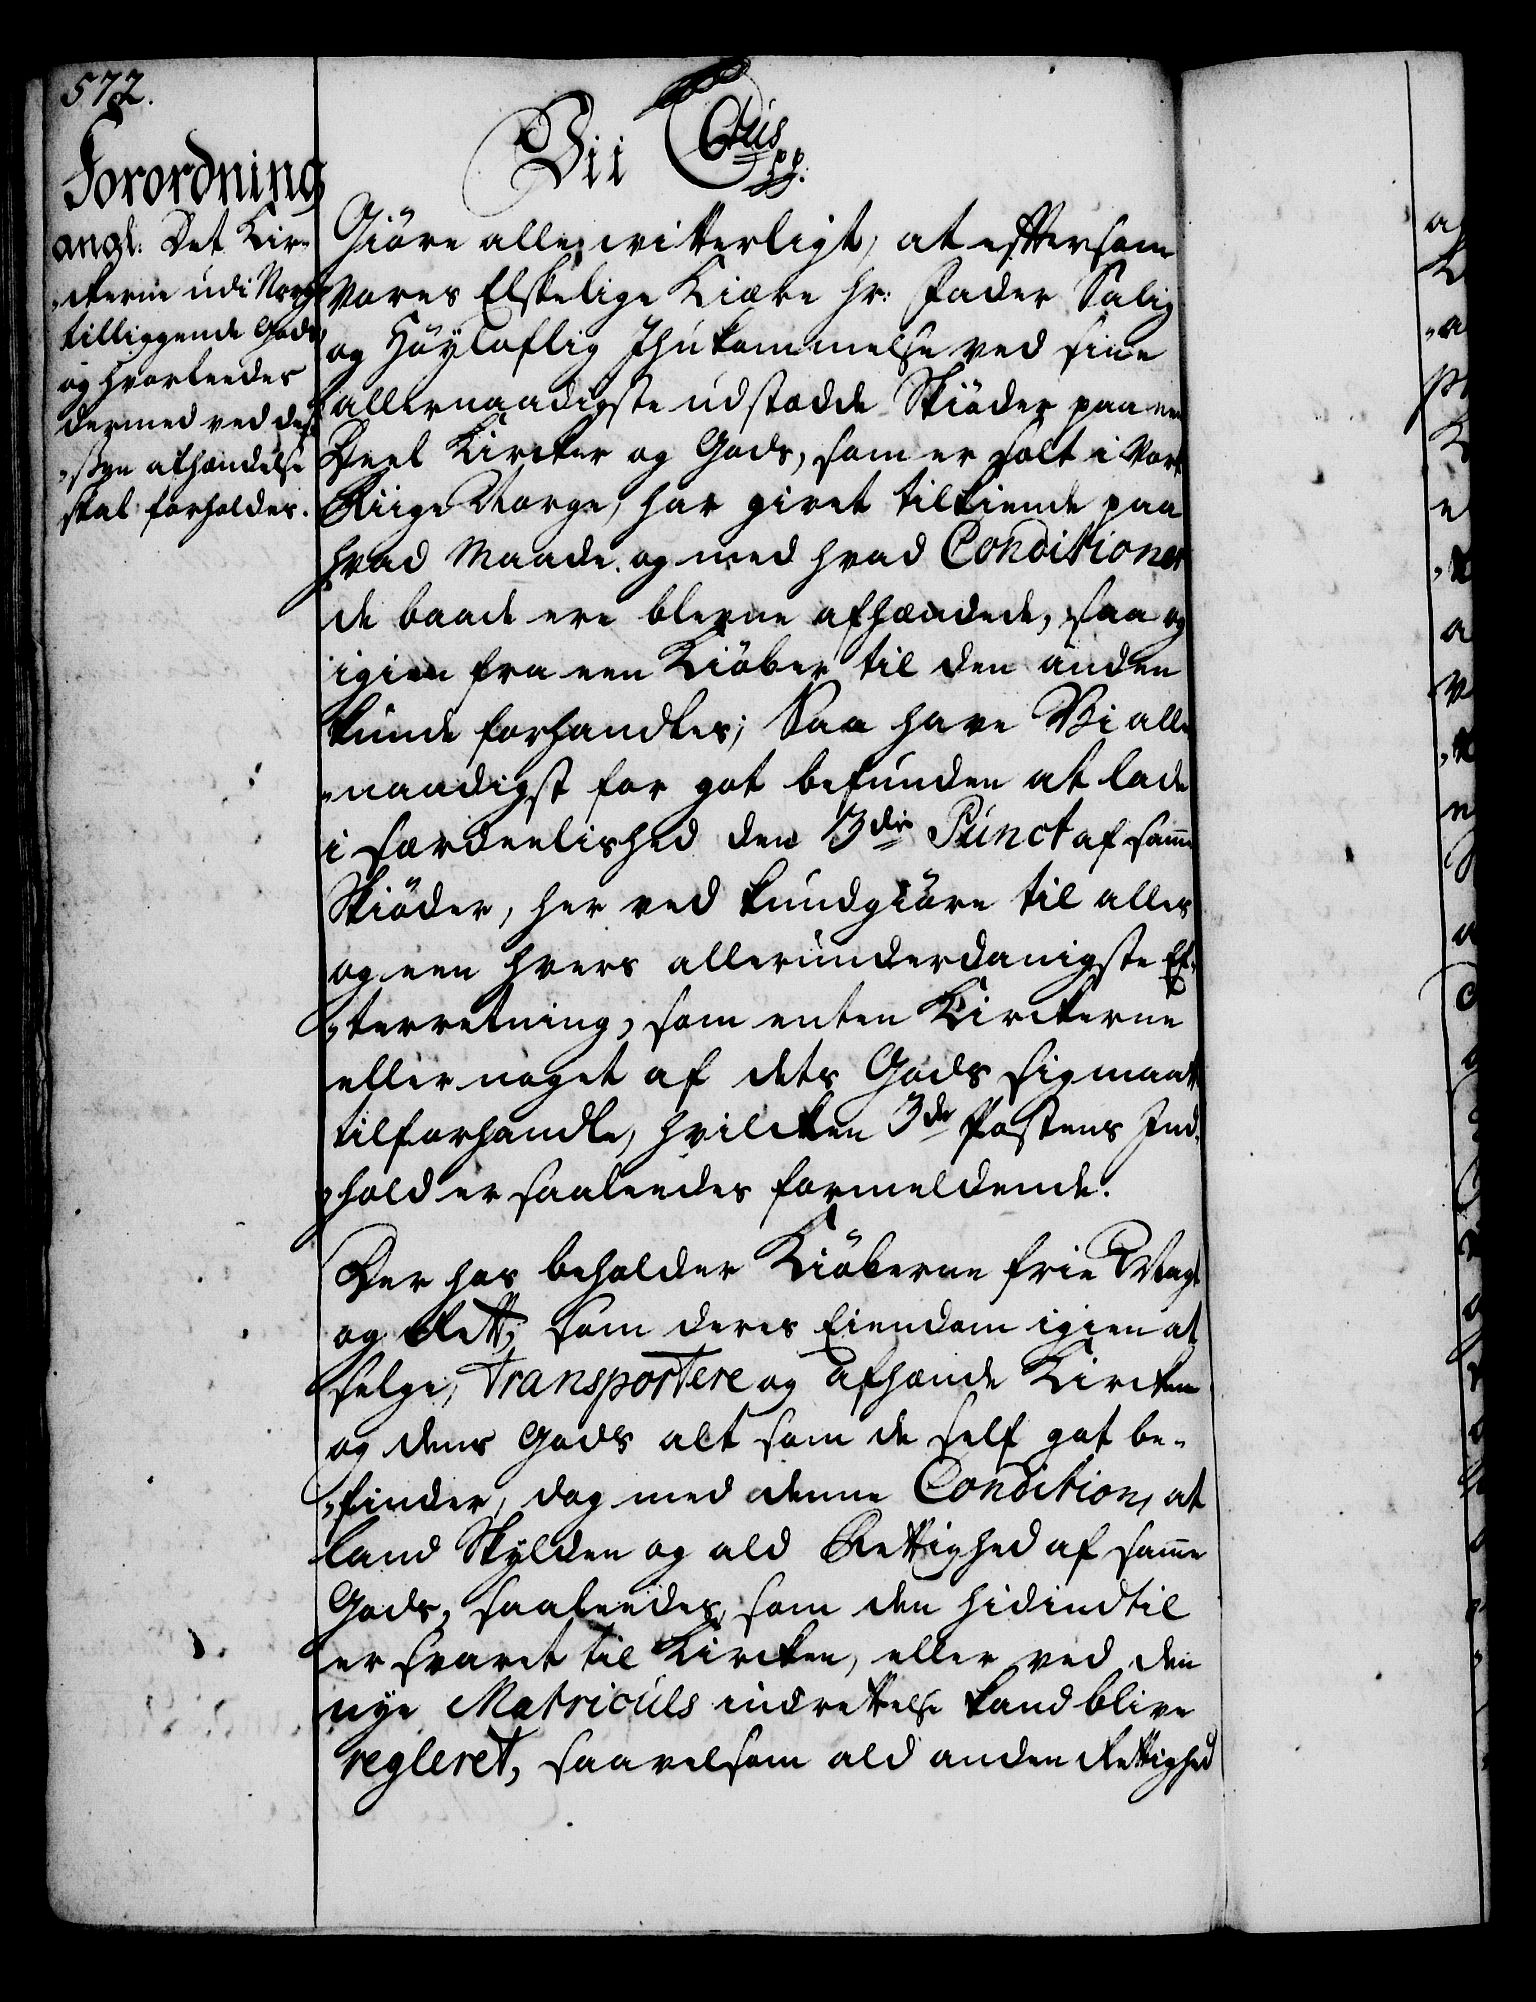 572.
Forordning
angl: Det Kir-
"ckerne udi Norge
tilliggende Gods
og hvorleedes
dermed ved des
"sen afhændelse
skal forholdes.
Vii C6tus pp.
Giöre alle witterligt, at eftersom
Vores Elskelige Kiære Hr: Fader Salig
og Høyloflig Ihukommelse ved sine
allernaadigste udstædde Skiöder paa een
Deel Kircker og Gods, som er solt i Vort
Riige Norge, har givet tilkiende paa
hvad Maade og med hvad Conditioner
de baade ere blevne afhændede, saa og
igien fra een Kiöber til den anden
kunde forhandles; Saa have Vi aller
"naadigst for got befunden at lade
i særdeelished den 3die Punct af samme
Skiöder, her ved kundgiöre til alles
og een hvers allerunderdanigste Ef-
"terretning, som enten Kirckerne
eller noget af dets Gods sig maatte
tilforhandle, hvilcken 3de Postens Ind-
"hold er saaleedes formeldende.
Der hos beholder Kiöberne frie Magt
og Rett, som deres Eiendom igien at
selge, transportere og afhænde Kircken
og dens Gods alt som de self got be-
"finder, dog med denne Condition, at
land Skylden og ald Rettighed af samme
Gods, saaleedes, som den hidindtil
er svaret til Kircken, eller ved den
nye Matriculs indrettelse kand blive
regleret, saavelsom ald anden Rettighed